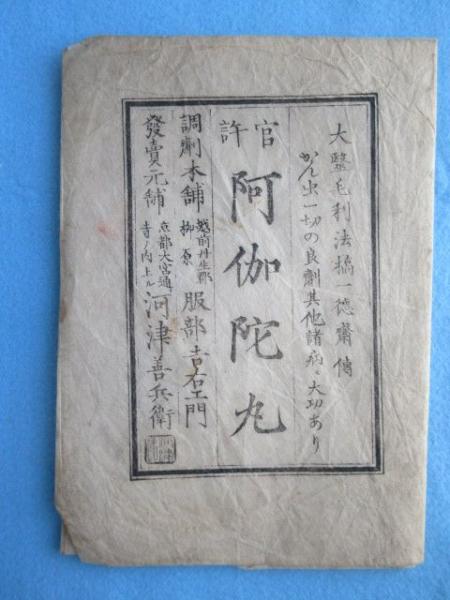 大醫毛利法橋一徳齋傳
かん虫一切の良劑其他諸病ニ大功あり
官許
阿伽陀丸
調劑本舗 越前丹生郡 柳原 服部吉右エ門
發賣元舗 京都大宮通 寺ノ内上ル 河津善兵衛